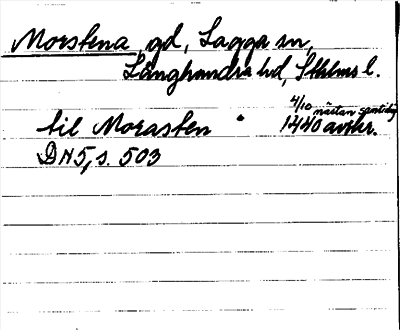 Morstena gd, Lagga sn,
Långhundra hd, Sthlms l.
4/10 nästan samtidig
til Morasten " 1440 avskr.
DN 5, s. 503